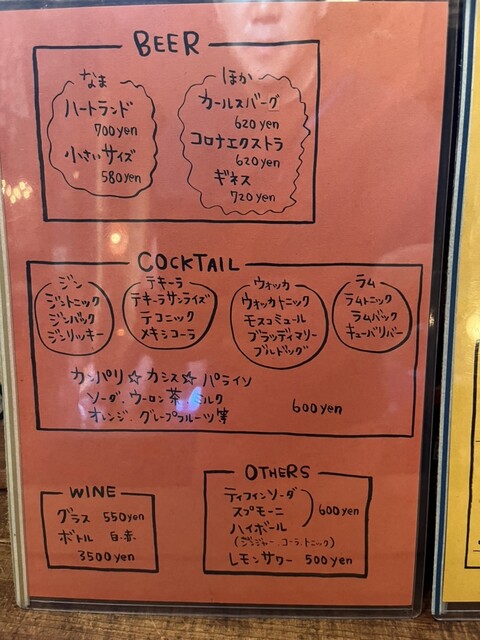 BEER
なま
ハートランド
700yen
小さいサイズ
580yen
ほか
カールスバーグ
620yen
コロナエクストラ
620yen
ギネス
720yen
COCKTAIL
ジン
ジントニック
ジンバック
ジンリッキー
テキーラ
テキーラサンライズ
テコニック
メキシコーラ
ウォッカ
ウォッカトニック
モスコミュール
ブラッディマリー
ブルドッグ
ラム
ラムトニック
ラムバック
キューバリバー
カンパリ☆カシス☆パライソ
ソーダ、ウーロン茶、ミルク
オレンジ、グレープフルーツ等 600yen
WINE
グラス 550yen
ボトル 白・赤
3500yen
OTHERS
ティフィンソーダ
スプモーニ 600yen
ハイボール
(ジンジャー、コーラ、トニック)
レモンサワー 500yen